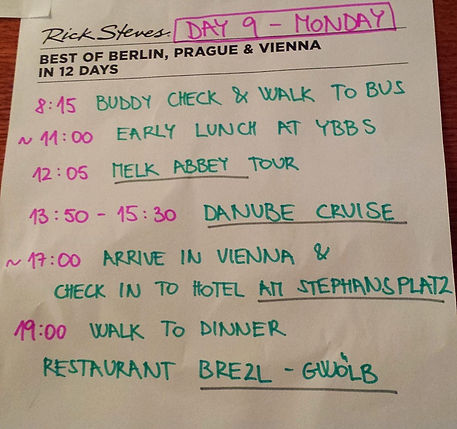 Rick Steves DAY 9 - MONDAY
BEST OF BERLIN, PRAGUE & VIENNA
IN 12 DAYS
8:15 BUDDY CHECK & WALK TO BUS
~ 11:00 EARLY LUNCH AT YBBS
12:05 MELK ABBEY TOUR
13:50 - 15:30 DANUBE CRUISE
~ 17:00 ARRIVE IN VIENNA &
CHECK IN TO HOTEL AM STEPHANSPLATZ
19:00 WALK TO DINNER
RESTAURANT BREZL - GWÖLB